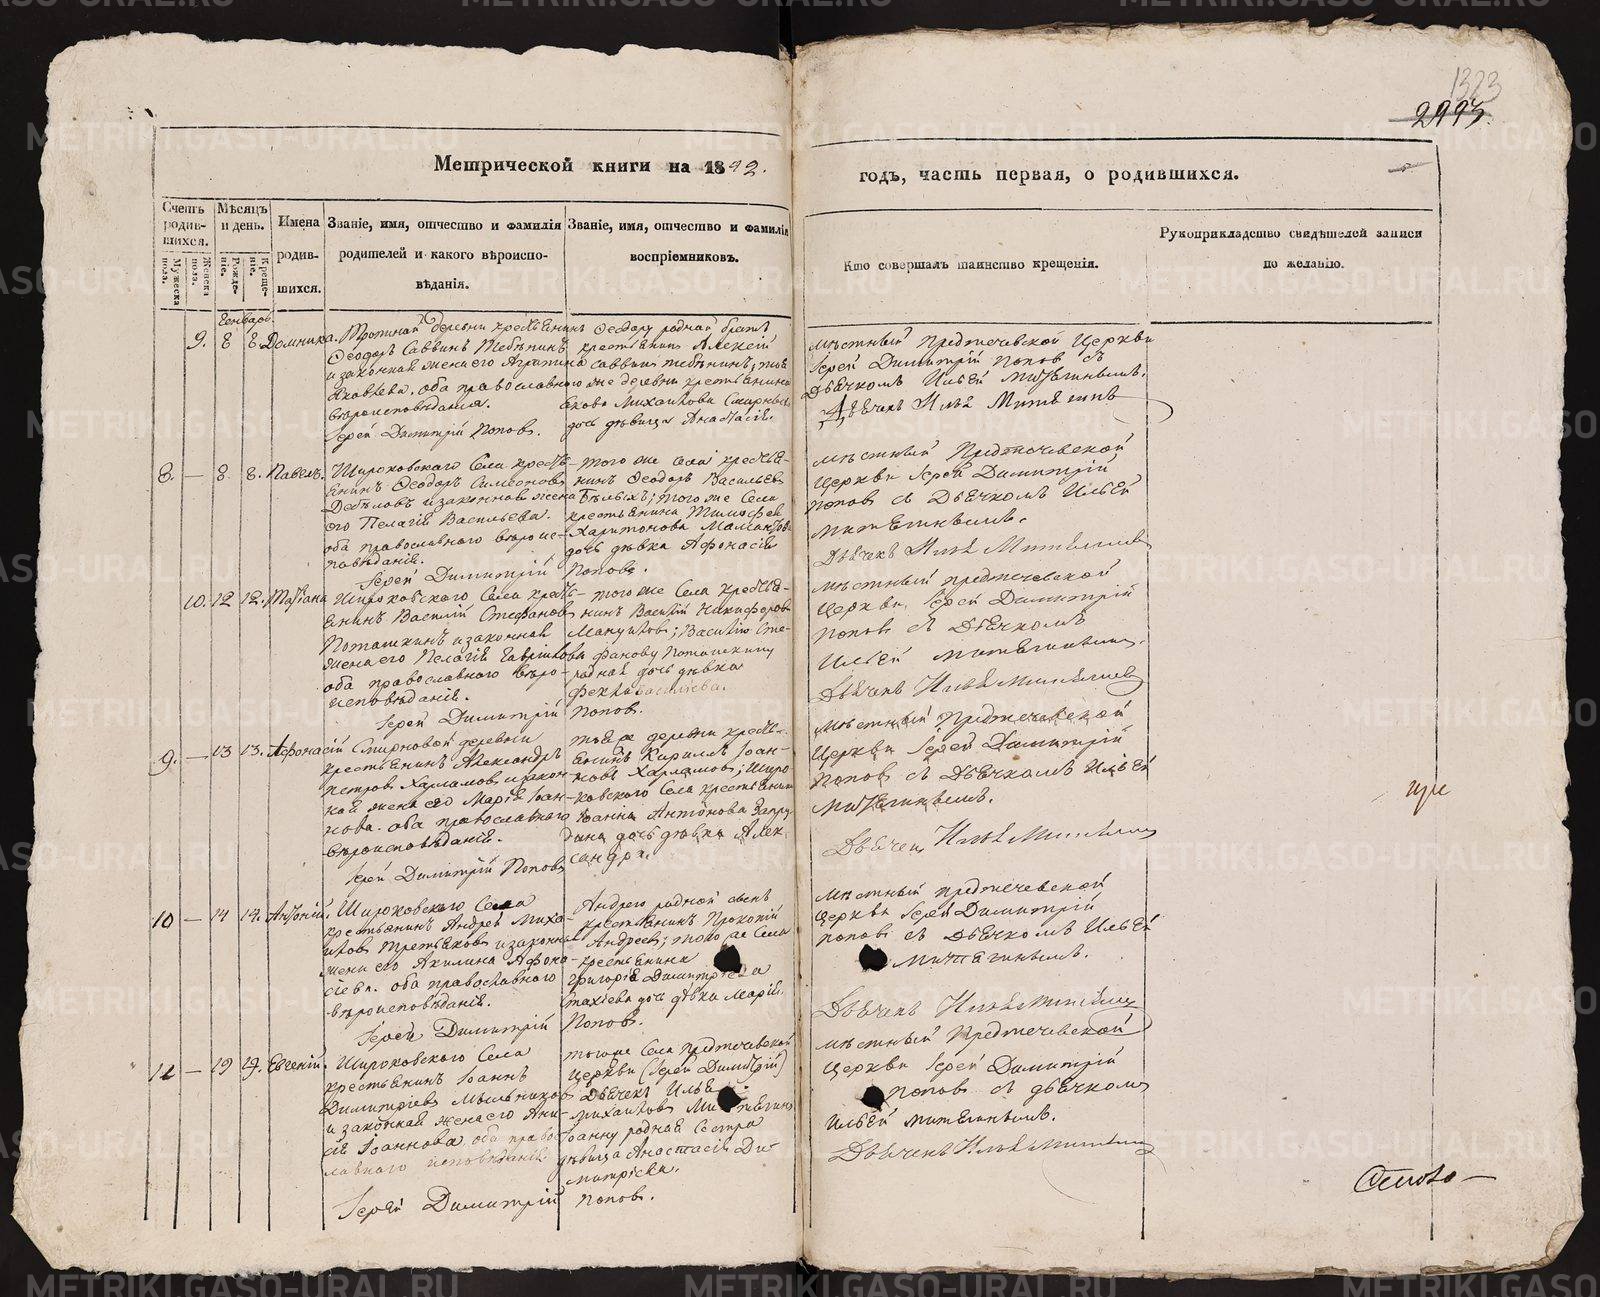 1323
2993.
Метрической книги на 1842.
годъ, часть первая, о родившихся.
Счетъ родив-шихся.
Мужеска пола.
Женска пола.
Мѣсяцъ и день.
Рожде-ніе.
Креще-ніе.
Имена родив-шихся.
Званіе, имя, отчество и фамилія
родителей и какого вѣроиспо-
вѣданія.
Званіе, имя, отчество и фамилія
воспріемниковъ.
Кто совершалъ таинство крещенія.
Рукоприкладство свидѣтелей записи
по желанію.
Генваря
9. 8 8 Домника.
деревни крестьянинъ
Ѳеодоръ Саввинъ
и законная жена его Агрипина
Яковлева. оба православнаго
вѣроисповѣданія.
Іерей Димитрій Поповъ.
Ѳеодору родной братъ
крестьянинъ Алексій
Саввинъ
же деревни крестьянина
Михайлова
дочь дѣвица Анастасія.
мѣстный Предтечевской Церкви
Іерей Димитрій Поповъ съ
Дьячкомъ Ильей Митягинымъ.
Дьячекъ Илья Митягинъ
8. — 8 8. Павелъ.
Широковскаго Села кресть-
янинъ Ѳеодоръ Симеоновъ
и законная жена
его Пелагія Васильева.
оба православнаго вѣроис-
повѣданія.
Іерей Димитрій Поповъ.
того же Села крестья-
нинъ Ѳеодоръ Васильевъ
Бѣлыхъ; того же Села
крестьянина Тимофея
Харитонова
дочь дѣвка Афонасія
мѣстный Предтечевской
Церкви Іерей Димитрій
Поповъ съ Дьячкомъ Ильей
Митягинымъ.
Дьячекъ Илья Митягинъ
10. 12 12. Татіана
Широковскаго Села кресть-
янинъ Василій Стефановъ
Поташкинъ и законная
жена его Пелагія Гаврилова
оба православнаго вѣро-
исповѣданія.
Іерей Димитрій Поповъ.
того же Села крестья-
нинъ Василій Никифоровъ
Мануиловъ; Василію Сте-
фанову Поташкину
родная дочь дѣвка
Фекла Васильева.
мѣстный Предтечевской
Церкви Іерей Димитрій
Поповъ съ Дьячкомъ
Ильей Митягинымъ.
Дьячекъ Илья Митягинъ
9. — 13 13. Афонасій
Смирновой деревни
крестьянинъ Александръ
Петровъ Харламовъ и закон-
ная жена его Марія Іоан-
нова. оба православнаго
вѣроисповѣданія.
Іерей Димитрій Поповъ
тоя же деревни кресть-
янинъ Кириллъ Іоан-
новъ Харламовъ; Широ-
ковскаго Села крестьянина
Іоанна Антонова Запру-
дина дочь дѣвка Алек-
сандра.
мѣстный Предтечевской
Церкви Іерей Димитрій
Поповъ съ Дьячкомъ Ильей
Митягинымъ.
Дьячекъ Илья Митягинъ
при
10 — 14 14. Антоній.
Широковскаго Села
крестьянинъ Андрей Миха-
йловъ Третьяковъ и законная
жена его Акилина Афона-
сіева. оба православнаго
вѣроисповѣданія.
Іерей Димитрій Поповъ.
Андрею родной сынъ
крестьянинъ Прокопій
Андреевъ; того же Села
крестьянина
Григорія Димитріева
дочь дѣвка Марія.
мѣстный Предтечевской
Церкви Іерей Димитрій
Поповъ съ Дьячкомъ Ильей
Митягинымъ.
Дьячекъ Илья Митягинъ
11 — 19 19. Евгеній.
Широковскаго Села
крестьянинъ Іоаннъ
Димитріевъ Мыльниковъ
и законная жена его Ани-
сія Іоаннова оба право-
славнаго исповѣданія.
Іерей Димитрій Поповъ.
того же Села Предтечевской
Церкви (Іерей Димитрій)
Дьячекъ Илья
Михайловъ Митягинъ
Іоанну родная Сестра
дѣвица Анастасія Ди-
митріева.
мѣстный Предтечевской
Церкви Іерей Димитрій
Поповъ съ Дьячкомъ
Ильей Митягинымъ.
Дьячекъ Илья Митягинъ
METRIKI.GASO-URAL.RU